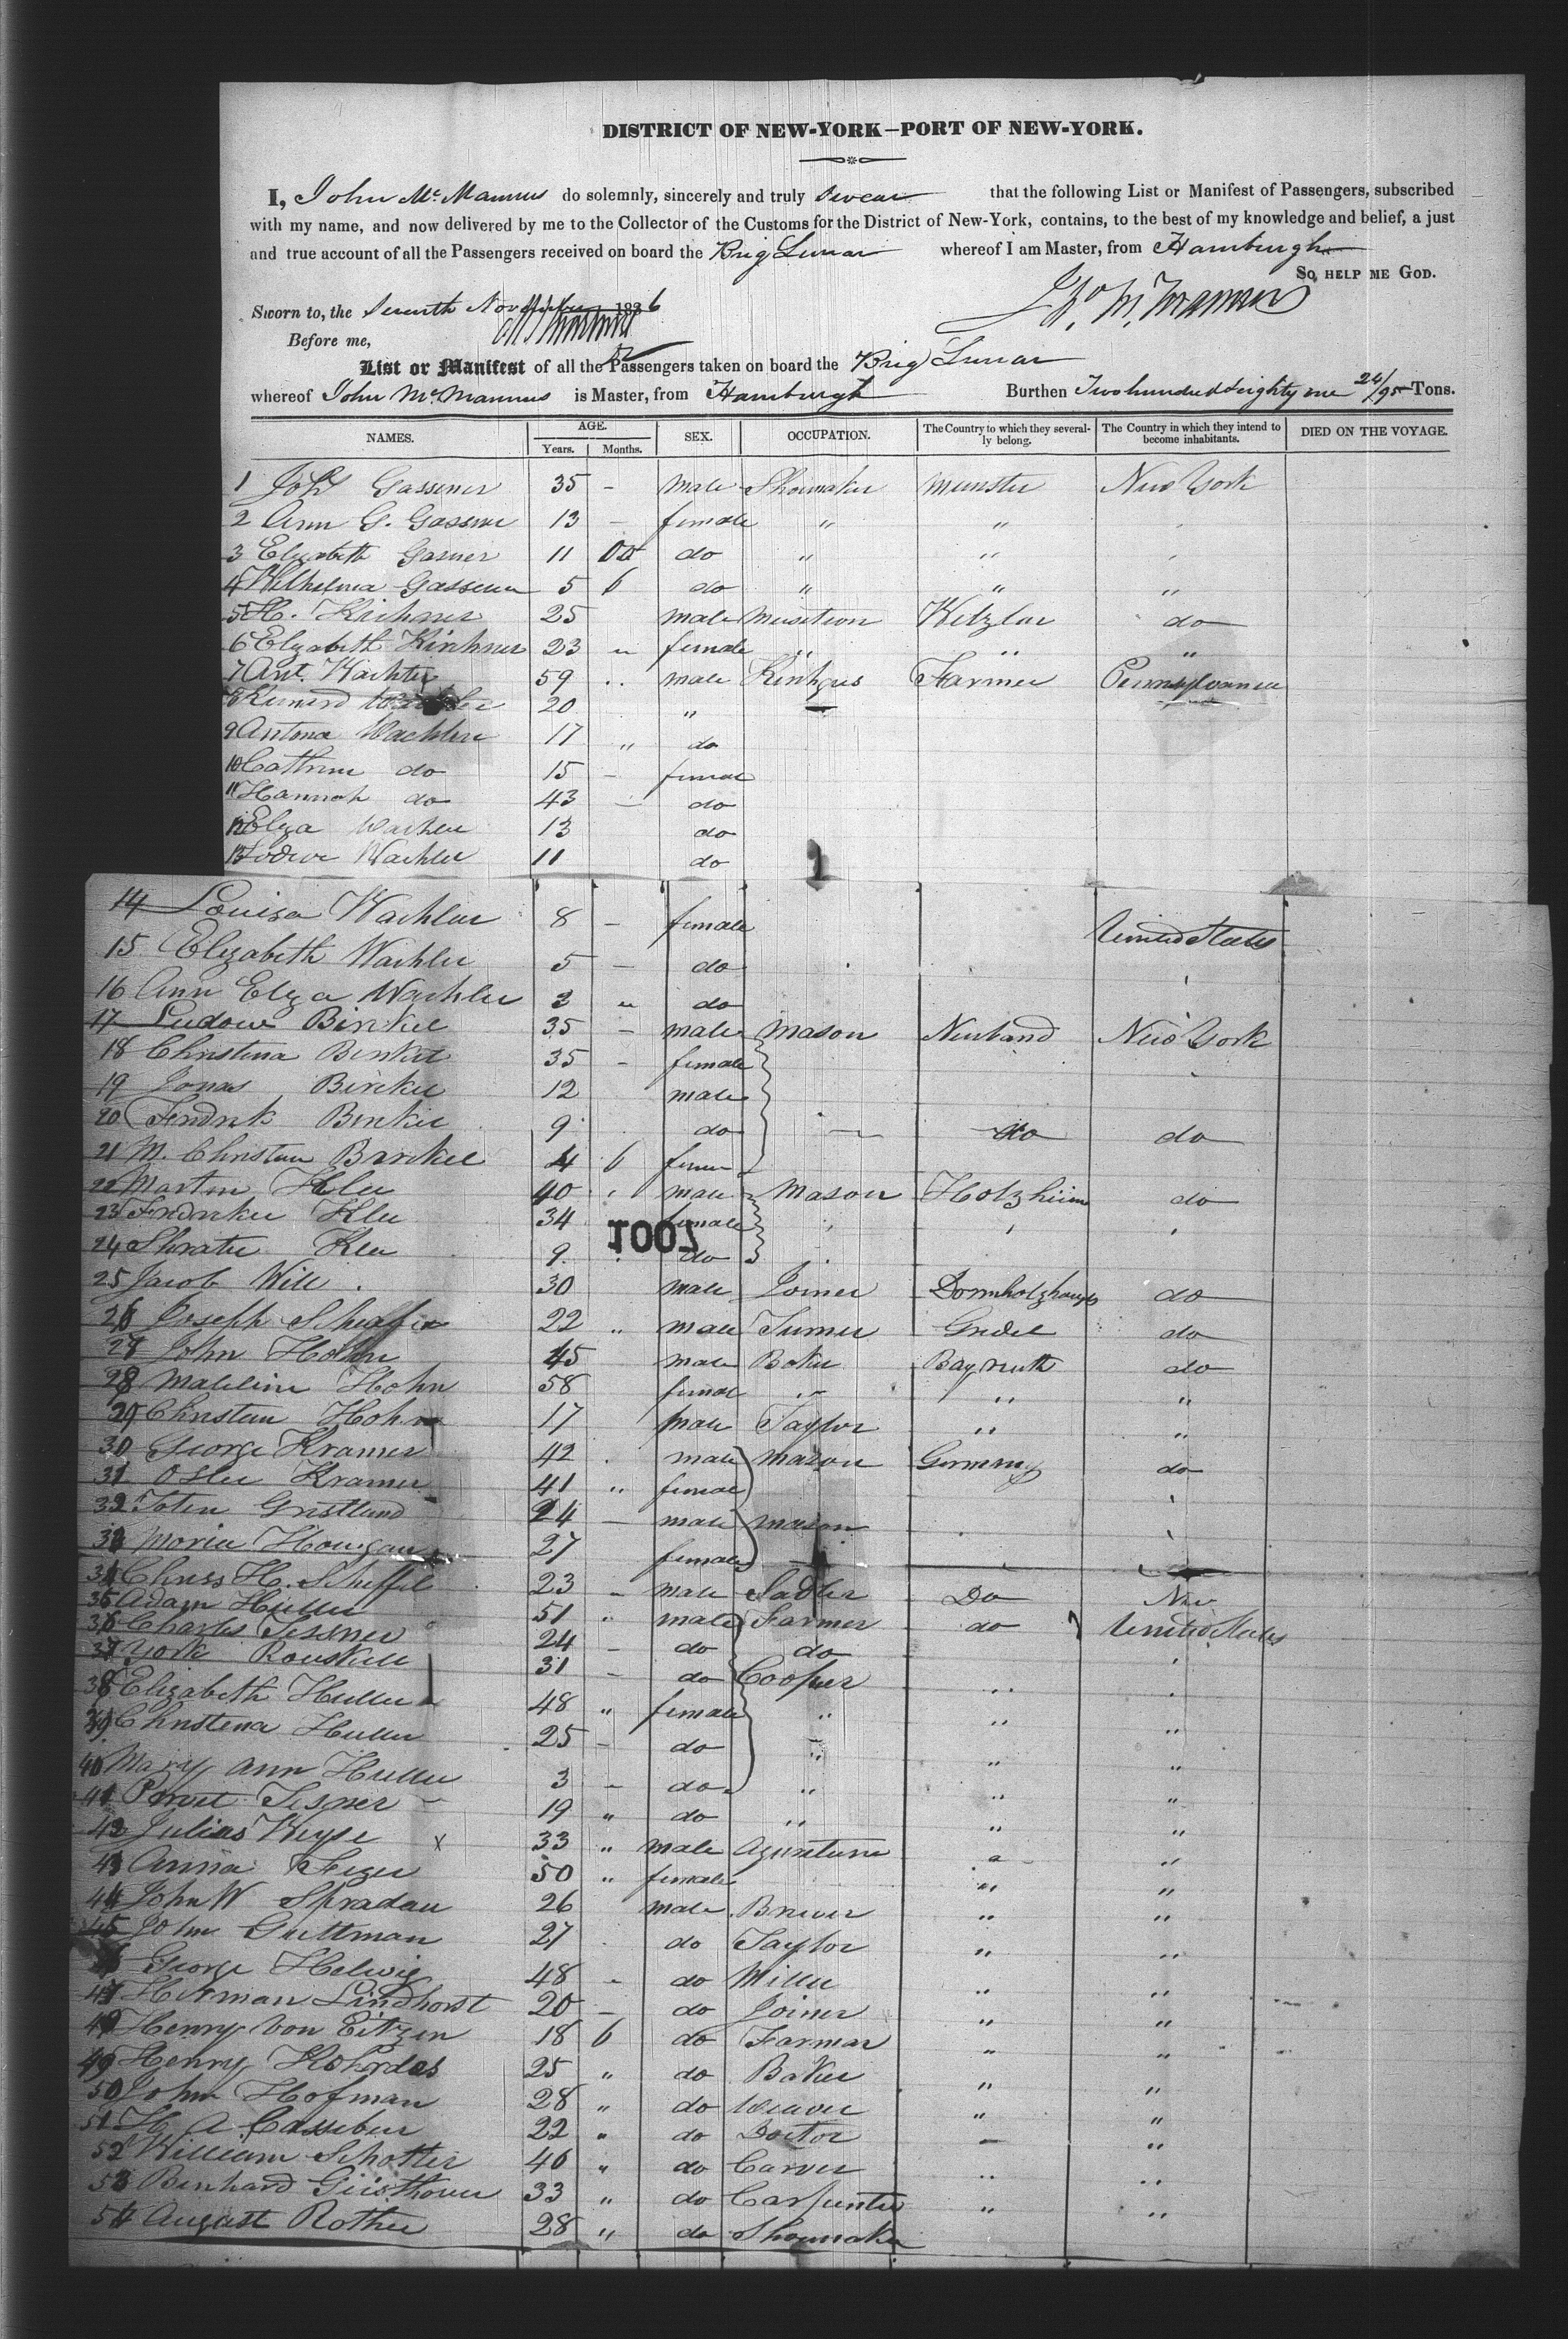 DISTRICT OF NEW-YORK—PORT OF NEW-YORK.
I, John McMannus do solemnly, sincerely and truly Swear that the following List or Manifest of Passengers, subscribed
with my name, and now delivered by me to the Collector of the Customs for the District of New-York, contains, to the best of my knowledge and belief, a just
and true account of all the Passengers received on board the Brig Lunar whereof I am Master, from Hamburgh
So HELP ME GOD.
Sworn to, the Seventh November 1836
Before me,
List or Manifest of all the Passengers taken on board the Brig Lunar
whereof John McMannus is Master, from Hamburgh Burthen Two hundred & eighty one 24/95 Tons.
NAMES. AGE. Years. Months. SEX. OCCUPATION. The Country to which they severally belong. The Country in which they intend to become inhabitants. DIED ON THE VOYAGE.
1 Gassener 35 – male Shoemaker Munster New York
2 Ann G. Gassene 13 – female " "
3 Elizabeth Gasner 11 do " "
4 Wilhelmia Gassener 5 6 do " " "
5 H. Kirhner 25 male Musition Wetzlar do
6 Elizabeth Kirhner 23 " female " " "
7 Ant. Wachter 59 " male Kinhgus Farmer Pennsylvania
8 20 "
9 Antona Wachler 17 " do
10 Cathrine do 15 – female
11 Hannah do 43 – do
12 Eliza Wachler 13 do
13 Wachler 11 do
14 Louisa Wachler 8 – female United States
15 Elizabeth Wachler 5 – do
16 Ann Eliza Wachler 3 " do
17 Ludow Binkel 35 – male Mason Neuband New York
18 Christina Binkel 35 – female
19 Jonas Binkel 12 male
20 Fredrik Binkel 9 do do do
21 M. Christian Binkel 4 6 female
22 Martin Klee 40 male Mason Holzheim do
23 Fredricka Klee 34 female
24 Klee 9 do
1007
25 Jacob Will 30 male Joiner Dornholzhausen do
26 Joseph Sheafer 22 " male Turner Gridel do
27 John Hohn 45 male Baker Bayreuth do
28 Madeline Hohn 58 female " " "
29 Christian Hohn 17 male Taylor " "
30 George Kramer 42 male Mason Germany do
31 Kramer 41 " female
32 24 – male Mason
33 Maria 27 female
34 H. Scheffel 23 – male Sadler Do New
35 Adam Huller 51 " male Farmer do United States
36 Charles Tessner 24 – do do
37 York 31 – do Cooper "
38 Elizabeth Huller 48 " female " " "
39 Christena Huller 25 – do " " "
40 Mary Ann Huller 3 – do " " "
41 Tesner 19 " do " " "
42 Julius Weyse x 33 " male "
43 Anna 50 " female " "
44 John W Spradau 26 male Brewer " "
45 John Guttman 27 do Taylor " "
46 George Helwig 48 – do Miller " "
47 Herman Lindhorst 20 – do Joiner " "
48 Henry von Eitzen 18 6 do Farmar " "
49 Henry Kohrdes 25 " do Baker " "
50 John Hofman 28 " do Weaver " "
51 H A Cassebeer 22 " do Doctor – "
52 William Schotler 40 " do Carver " "
53 Benhard 33 " do Carpenter " "
54 August Rother 28 " do Shoemaker